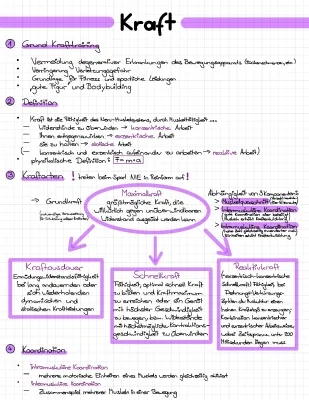 Kraft
① Grund Krafttraining
• Vermeidung degenerativer Erkrankungen des Bewegungsapparats
• Verringerung Verletzungsgefahr
• Grundlage für Fitness und sportliche Leistungen
• gute Figur und Bodybuilding
② Definition
• Kraft ist die Fähigkeit des Nerv-Muskelsystems, durch Muskeltätigkeit...
— Widerstände zu überwinden → konzentrische Arbeit
— ihnen entgegenzuwirken → exzentrische Arbeit
— sie zu halten → statische Arbeit
(— konzentrisch und exzentrisch aufeinander zu arbeiten → reaktive Arbeit)
• physikalische Definition: F = m · a
③ Kraftarten ! treten beim Sport NIE in Reinform auf !
→ Grundkraft
Maximalkraft
größtmögliche Kraft, die
willkürlich gegen unüberwindbaren
Widerstand ausgeübt werden kann
Abhängigkeit von 3 Komponenten:
> Muskelquerschnitt
> Intramuskuläre Koordination
> Intermuskuläre Koordination
Kraftausdauer
Ermüdungswiderstandsfähigkeit
bei lang andauernden oder
sich wiederholenden
dynamischen und
statischen Kraftleistungen
Schnellkraft
Fähigkeit, optimal schnell Kraft
zu bilden und Kraftmaximum
zu erreichen oder ein Gerät
mit höchster Geschwindigkeit
zu bewegen, bzw. Widerstände
mit höchstmöglicher Kontraktions-
geschwindigkeit zu überwinden
Reaktivkraft
(exzentrisch-konzentrische
Schnellkraft) Fähigkeit, bei
Dehnungs-Verkürzungs-
Zyklen der Muskulatur einen
hohen Kraftstoß zu erzeugen;
Kombination konzentrischer
und exzentrischer Arbeitsweise,
wobei Zeitspanne unter 200
Millisekunden liegen muss
④ Koordination
• Intramuskuläre Koordination
— mehrere motorische Einheiten eines Muskels werden gleichzeitig aktiviert
• Intermuskuläre Koordination
— Zusammenspiel mehrerer Muskeln in einer Bewegung